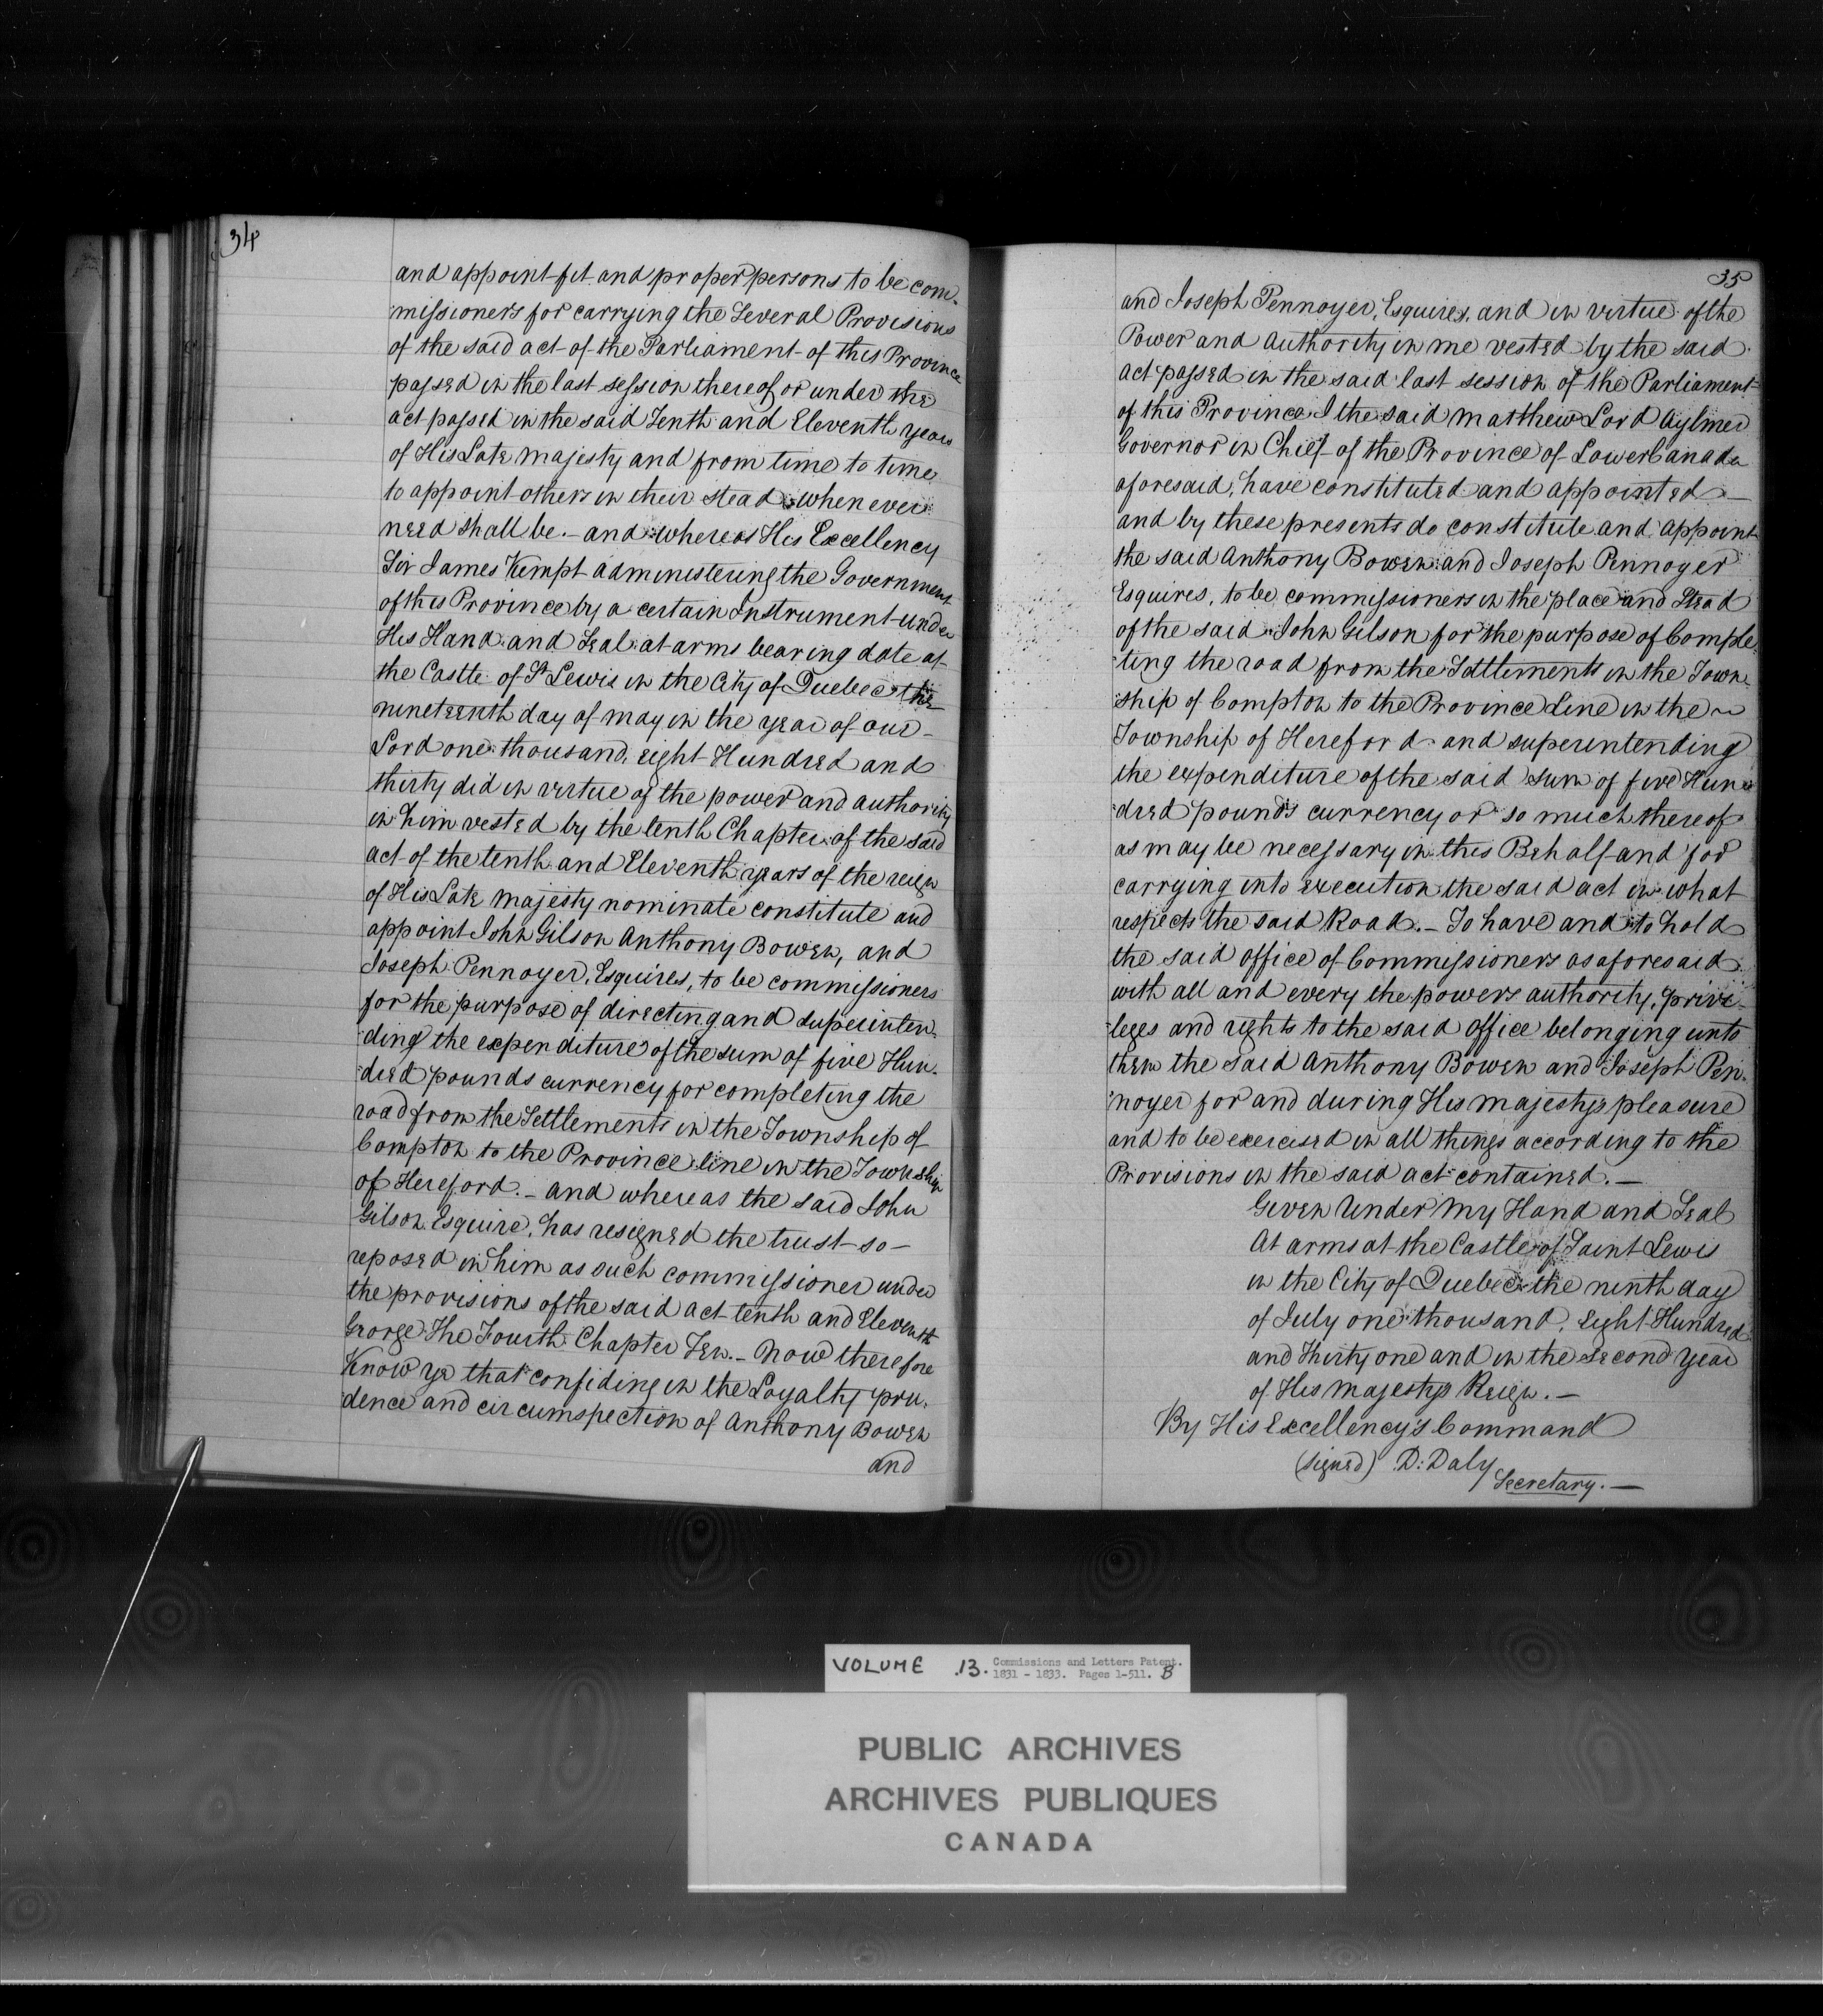 34
and appoint fit and proper persons to be com-
missioners for carrying the Several Provisions
of the said act of the Parliament of this Province
passed in the last session thereof or under the
act passed in the said Tenth and Eleventh years
of His Late majesty and from time to time
to appoint others in their stead when ever
need shall be. – and whereas His Excellency
Sir James Kempt administering the Government
of this Province by a certain Instrument under
His Hand and Seal at arms bearing date at
the Castle of St Lewis in the City of Quebec the
nineteenth day of may in the year of our –
Lord one thousand, eight Hundred and
thirty did in virtue of the power and authority
in him vested by the tenth Chapter of the said
act of the tenth and Eleventh years of the reign
of His Late majesty nominate constitute and
appoint John Gilson Anthony Bowen, and
Joseph Pennoyer, Esquires, to be commissioners
for the purpose of directing and superinten-
ding the expenditure of the sum of five Hun-
dred pounds currency for completing the
road from the Settlements in the Township of
Compton to the Province line in the Township
of Hereford. – and whereas the said John
Gilson Esquire, has resigned the trust so –
reposed in him as such commissioner under
the provisions of the said act tenth and Eleventh
George The Fourth Chapter Ten. – Now therefore
Know ye that confiding in the Loyalty pru-
dence and circumspection of Anthony Bowen
and
35
and Joseph Pennoyer, Esquires, and in virtue of the
Power and Authority in me vested by the said
act passed in the said last session of the Parliament
of this Province I the said Matthew Lord Aylmer
Governor in Chief of the Province of Lower Canada
aforesaid, have constituted and appointed –
and by these presents do constitute and appoint
the said Anthony Bowen and Joseph Pennoyer
Esquires, to be commissioners in the place and Stead
of the said John Gilson for the purpose of Comple-
ting the road from the Settlements in the Town-
ship of Compton to the Province Line in the ~
Township of Hereford and superintending
the expenditure of the said Sum of five Hun-
dred pounds currency or so much thereof
as may be necessary in this Behalf and for
carrying into execution the said act in what
respects the said Road. – To have and to hold
the said office of Commissioners as aforesaid
with all and every the powers authority, privi-
leges and rights to the said office belonging unto
them the said Anthony Bowen and Joseph Pen-
noyer for and during His majestys pleasure
and to be exercised in all things according to the
Provisions in the said act contained. –
Given Under My Hand and Seal
At arms at the Castle of Saint Lewis
in the City of Quebec the ninth day
of July one thousand, Eight Hundred
and Thirty one and in the second year
of His majestys Reign. –
By His Excellency's Command
(signed) D: Daly
Secretary. –
VOLUME 13. Commissions and Letters Patent.
1831 - 1833. Pages 1-511. B
PUBLIC ARCHIVES
ARCHIVES PUBLIQUES
CANADA